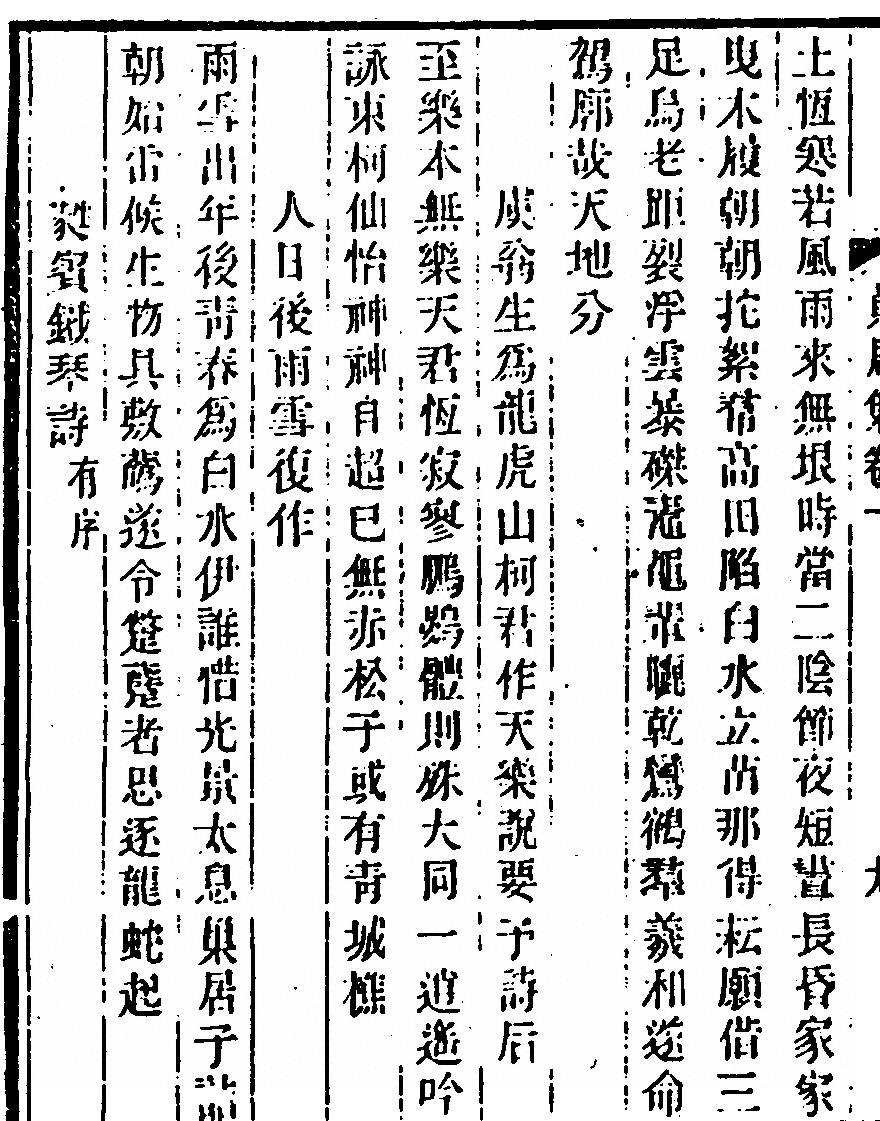 土恆寒若風雨來無垠時當二陰節夜短晝長昏家家
曳木屐朝朝拕絮褌高田陷白水立苗那得耘願借三
足烏老距裂浮雲暴磔黿罪曬乾鸞鶴羣羲和遂命
駕廓哉天地分
虞翁生爲龍虎山柯君作天樂說要予詩后
至樂本無樂天君恆寂寥鵬鷃體則殊大同一逍遙吟
詠東柯仙怡神神自超已無赤松子或有青城樵
人日後雨雪復作
雨雪出年後青春爲白水伊誰惜光景太息巢居子
朝始雷候生物具敷薾遂令躄者思逐龍蛇起
蕤賓鐵琴詩有序